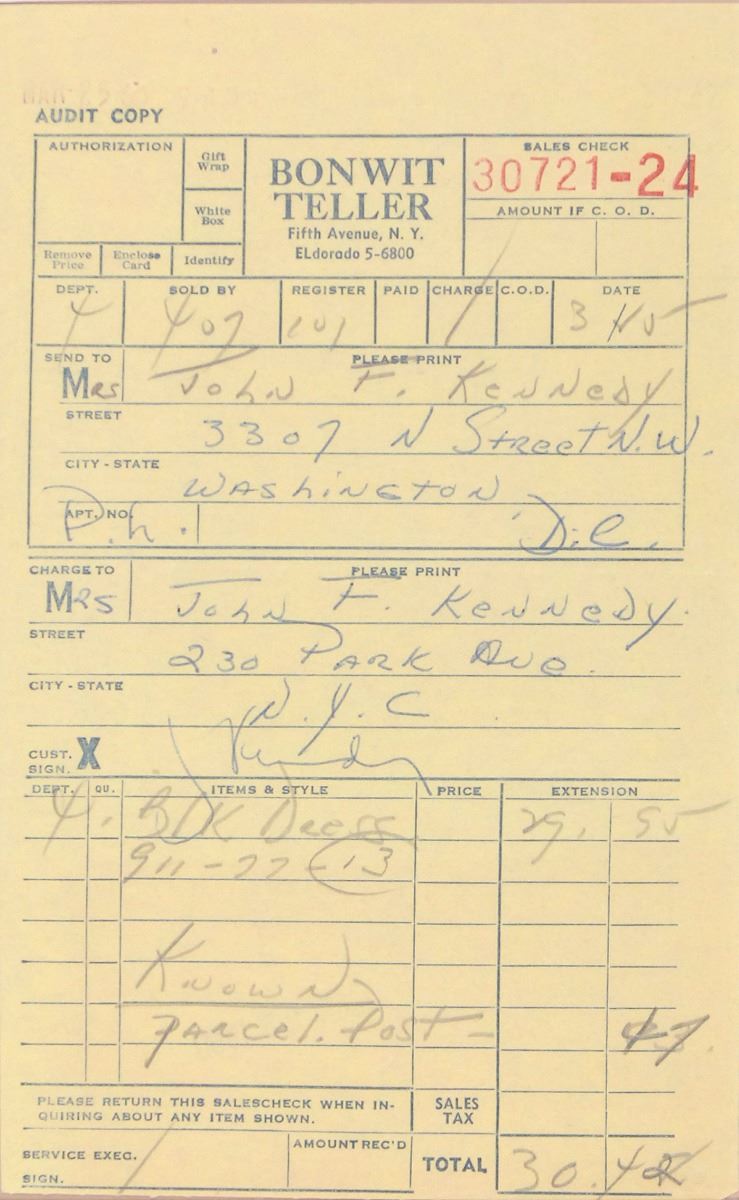 AUDIT COPY
AUTHORIZATION
Gift Wrap
White Box
Remove Price
Enclose Card
Identify
BONWIT
TELLER
Fifth Avenue, N. Y.
ELdorado 5-6800
SALES CHECK
30721-24
AMOUNT IF C. O. D.
DEPT. SOLD BY REGISTER PAID CHARGE C.O.D. DATE
4 407 101 3
SEND TO PLEASE PRINT
Mrs John F. Kennedy
STREET
3307 N Street N.W.
CITY - STATE
Washington
APT. NO.
P.h. D.C.
CHARGE TO PLEASE PRINT
Mrs John F. Kennedy.
STREET
230 Park Ave.
CITY - STATE
N.Y.C
CUST. SIGN. X
DEPT. QU. ITEMS & STYLE PRICE EXTENSION
4. Blk Dress 29. 95
911-77-13
Known
Parcel. Post - 47
PLEASE RETURN THIS SALESCHECK WHEN IN-
QUIRING ABOUT ANY ITEM SHOWN.
SALES TAX
SERVICE EXEC. SIGN.
AMOUNT REC'D
TOTAL 30.42